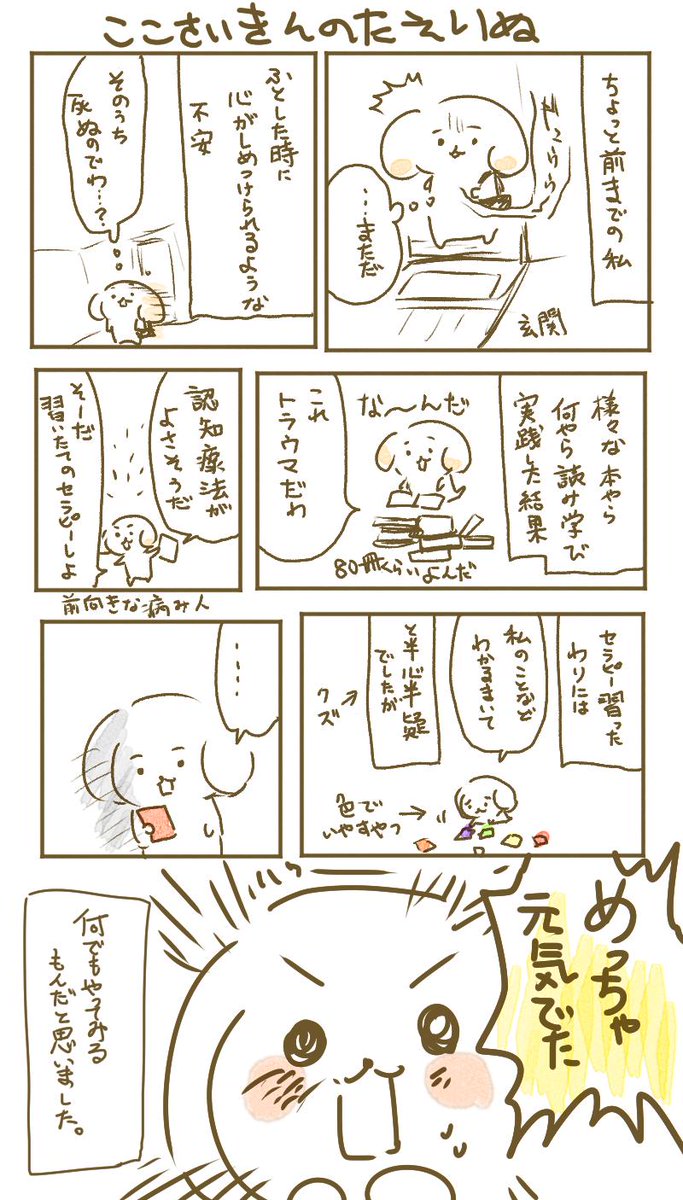 ここさいきんのたえいぬ
ちょっと前までの私
…まただ
玄関
ふとした時に
心がしめつけられるような
不安
そのうち
死ぬのでわ…?
様々な本やら
何やら読み学び
実践した結果
な〜んだ
これ
トラウマだわ
80冊くらいよんだ
認知療法が
よさそうだ
そーだ
習いたてのセラピーしよ
前向きな病み人
セラピー習った
わりには
私のことなど
わかるまいて
と半心半疑
でしたが
クズ
色で
いやすやつ
……
めっちゃ
元気でた
何でもやってみる
もんだと思いました。